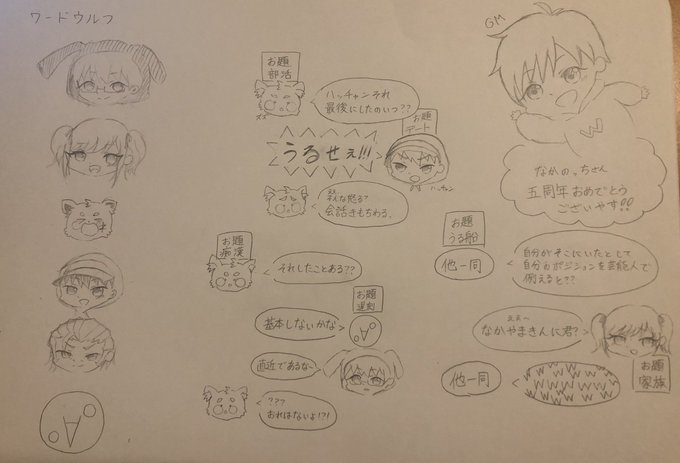 ワードウルフ
お題
部活
ハッチャンそれ
最後にしたのいつ??
ズズ
お題
デート
うるせぇ!!!
ハッチャン
そんな怒る?
会話きもちわる、
お題
痴漢
それしたことある??
お題
遅刻
基本しないかな
直近であるな~
???
おれはないよ!?!
GM
W
なかのっちさん
五周年おめでとう
ございやす!!
お題
うる船
他一同
自分がそこにいたとして
自分のポジションを芸能人で
例えると??
なかやまきんに君?
お題
家族
他一同
W W W W W W